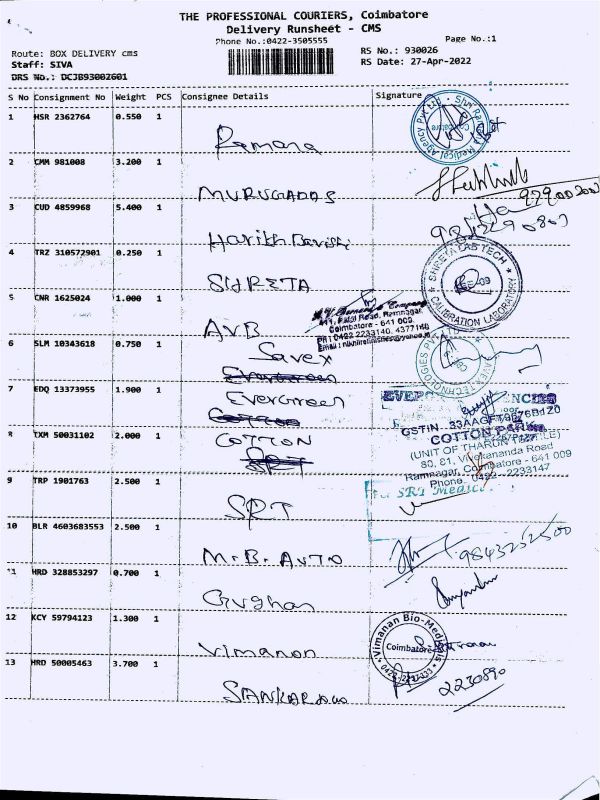 THE PROFESSIONAL COURIERS, Coimbatore
Delivery Runsheet - CMS
Phone No.:0422-3505555
Page No.:1
Route: BOX DELIVERY cms
RS No.: 930026
Staff: SIVA
RS Date: 27-Apr-2022
DRS No.: DCJB93002601
S No Consignment No Weight PCS Consignee Details Signature
1 HSR 2362764 0.550 1
Ramana
2 CMM 981008 3.200 1
MURUGADOS
3 CUD 4859968 5.400 1
Harith
4 TRZ 310572901 0.250 1
SHRETA
SHRETA LAB TECH
CALIBRATION LABORATORY
5 CNR 1625024 1.000 1
AVB
Ramnagar,
Coimbatore - 641 009.
PH : 0422 2233140, 4377160
6 SLM 10343618 0.750 1
Savex
Evergreen
7 EDQ 13373955 1.900 1
Evergreen
Cotton
8 TXM 50031102 2.000 1
COTTON
SRT
COTTON
80, 81, Vivekananda Road
Ramnagar, Coimbatore - 641 009
Phone : 0422 - 2233147
9 TRP 1901763 2.500 1
SRT
10 BLR 4603683553 2.500 1
M.B. AUTO
9843252500
11 HRD 328853297 0.700 1
Gughan
12 KCY 59794123 1.300 1
Vimanan
Vimanan Bio-Medicals
Coimbatore
13 HRD 50005463 3.700 1
2230890